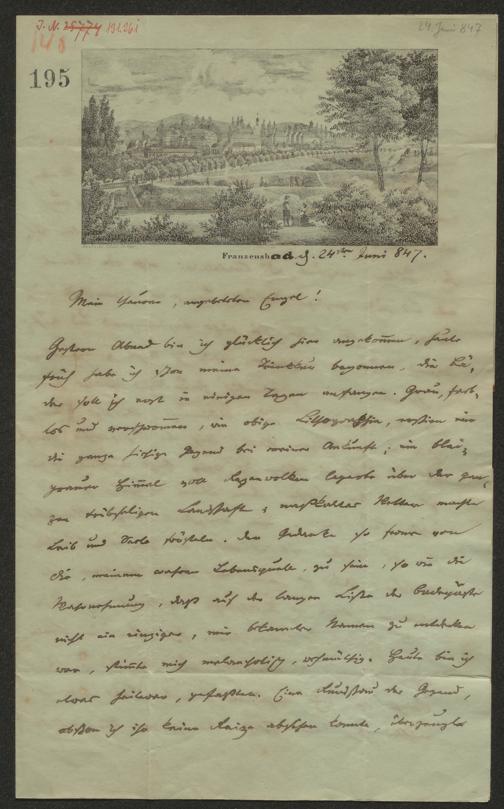 J. N. 25774 131.261
148
24. Juni 847
195
Franzensbad. d. 24ten Juni 847.
Mein theurer, angebeteter Engel!
Gestern Abend bin ich glücklich hier angekommen, heute
früh habe ich schon meine Trinkkur begonnen, die Bä-
der soll ich erst in einigen Tagen anfangen. Grau, farb-
los und verschwommen, wie obige Lithographie, erschien mir
die ganze hiesige Gegend bei meiner Ankunft; ein blei-
grauer Himmel voll Regenwolken lagerte über der gan-
zen trübseligen Landschaft; naßkaltes Wetter machte
Leib und Seele frösteln. Der Gedanke so ferne von
Dir, meinem wahren Lebensquale, zu sein, so wie die
Wahrnehmung, daß auf der langen Liste der Badegäste
nicht ein einziger, mir bekannter Namen zu entdecken
war, stimmte mich melancholisch, wehmüthig. Heute bin ich
etwas heiterer, gefaßter. Eine Rundschau der Gegend,
obschon ich ihr keine Reize absehen konnte, überzeugte